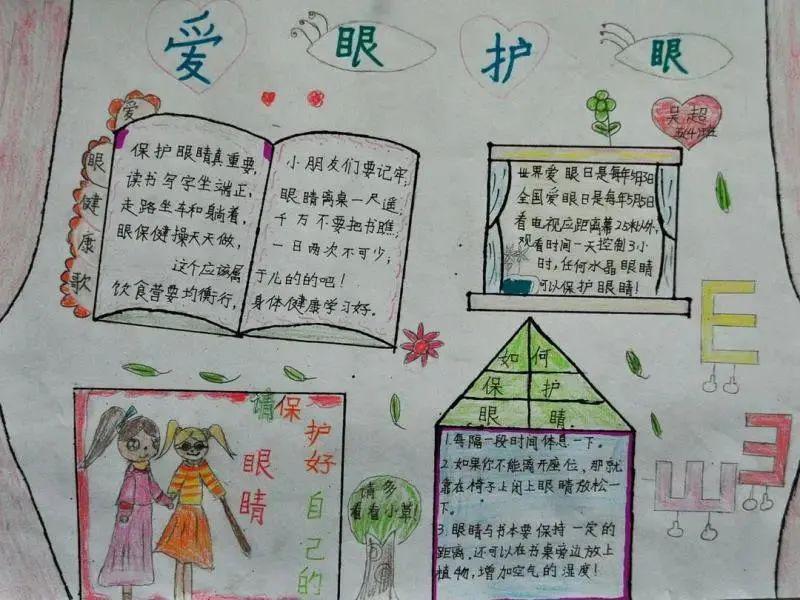 爱 眼 护 眼
吴超
五4班
爱眼健康歌
保护眼睛真重要,
读书写字坐端正,
走路坐车和躺着,
眼保健操天天做,
这个应该属
饮食营要均衡行,
小朋友们要记牢;
眼睛离桌一尺遥,
千万不要把书瞧,
一日两次不可少;
于儿的的吧!
身体健康学习好。
世界爱眼日是每年
全国爱眼日是每年5月5日
看电视应距离幕2.5米以外,
观看时间一天控制3小
时,任何水晶眼睛
可以保护眼睛!
如何
保护
眼睛
1.每隔一段时间体息一下。
2.如果你不能离开座位,那就
靠在椅子上闭上眼睛放松一
下。
3.眼睛与书本要保持一定的
距离.还可以在书桌旁边放上
植物,增加空气的湿度!
请保护好自己的
眼睛
请多
看看小草!
E
E
E